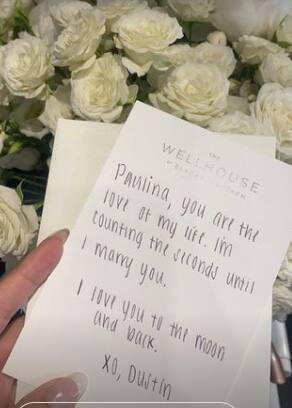 THE
WELLHOUSE
Paulina, you are the
love of my life. I'm
counting the seconds until
I marry you.
I love you to the moon
and back.
XO, Dustin